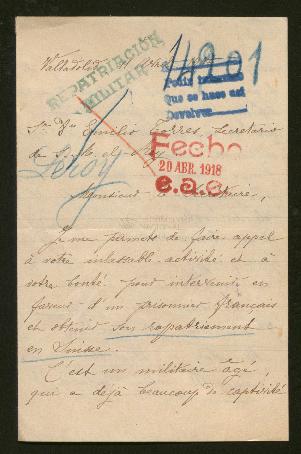 Valladolid
14201
REPATRIACIÓN
MILITAR
Que se hace así
Devolver
Sr. Dn Emilio Torres, Secretario
de S. M. el Rey
Fecho
20 ABR. 1918
e.a.e.
Leroy
Monsieur le Secrétaire,
Je me permets de faire appel
à votre inlassable activité et à
votre bonté pour intervenir en
faveur d'un prisonnier français
et obtenir son rapatriement
en Suisse.
C'est un militaire âgé,
qui a déjà beaucoup de captivité